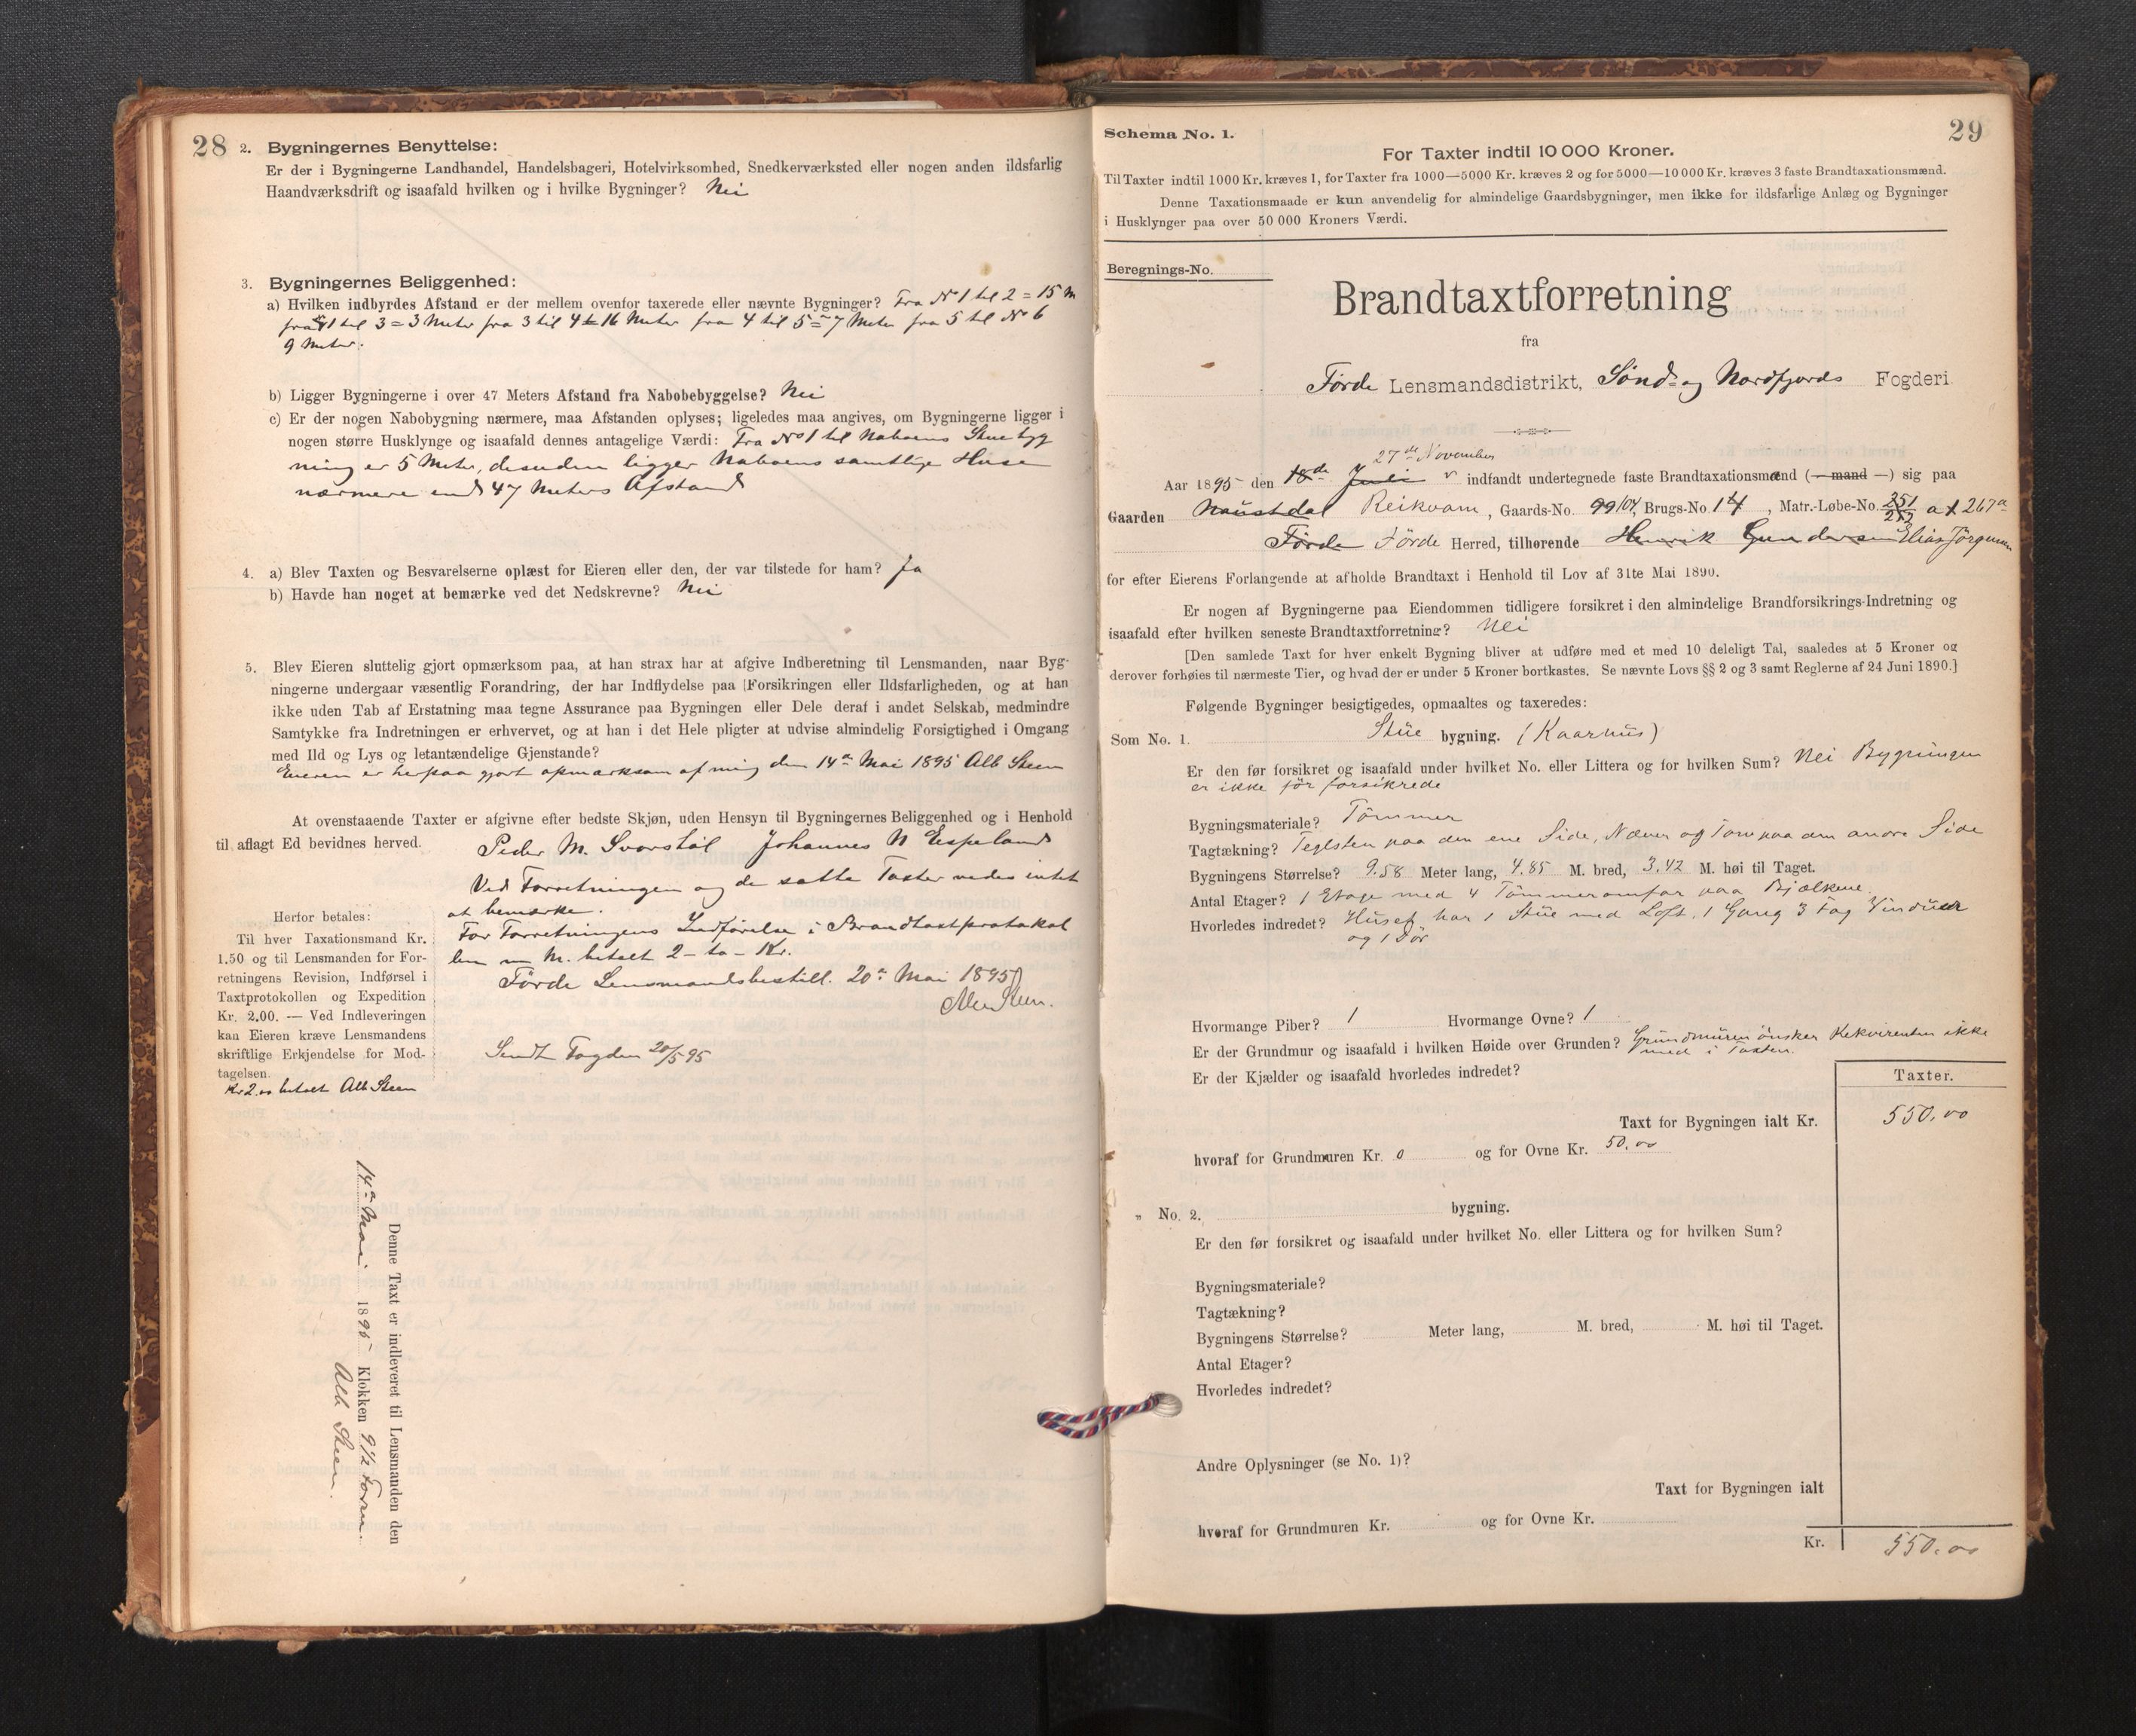 28
2. Bygningernes Benyttelse:
Er der i Bygningerne Landhandel, Handelsbageri, Hotelvirksomhed, Snedkerværksted eller nogen anden ildsfarlig
Haandværksdrift og isaafald hvilken og i hvilke Bygninger? Nei
3. Bygningernes Beliggenhed:
a) Hvilken indbyrdes Afstand er der mellem ovenfor taxerede eller nævnte Bygninger? Fra No 1 til 2 = 15 M
fra 1 til 3 = 3 Meter fra 3 til 4 = 16 Meter fra 4 til 5 = 7 Meter fra 5 til No 6
9 Meter.
b) Ligger Bygningerne i over 47 Meters Afstand fra Nabobebyggelse? Nei
c) Er der nogen Nabobygning nærmere, maa Afstanden oplyses; ligeledes maa angives, om Bygningerne ligger i
nogen større Husklynge og isaafald dennes antagelige Værdi: Fra No 1 til Naboens Stuebyg
ning er 5 Meter, desuden ligger Naboens samtlige Huse
nærmere end 47 Meters Afstand
4. a) Blev Taxten og Besvarelserne oplæst for Eieren eller den, der var tilstede for ham? Ja
b) Havde han noget at bemærke ved det Nedskrevne? Nei
5. Blev Eieren sluttelig gjort opmærksom paa, at han strax har at afgive Indberetning til Lensmanden, naar Byg-
ningerne undergaar væsentlig Forandring, der har Indflydelse paa Forsikringen eller Ildsfarligheden, og at han
ikke uden Tab af Erstatning maa tegne Assurance paa Bygningen eller Dele deraf i andet Selskab, medmindre
Samtykke fra Indretningen er erhvervet, og at han i det Hele pligter at udvise almindelig Forsigtighed i Omgang
med Ild og Lys og letantændelige Gjenstande?
Eieren er herpaa gjort opmærksom af mig den 14de Mai 1895 Alb Steen
At ovenstaaende Taxter er afgivne efter bedste Skjøn, uden Hensyn til Bygningernes Beliggenhed og i Henhold
til aflagt Ed bevidnes herved. Peder M. Svorstøl Johannes N Espeland
Ved Forretningen og de satte Taxter vedes intet
at bemærke.
For Forretningens Indførelse i Brandtaxtprotokol
len m M. betalt 2 – to – Kr.
Førde Lensmandsbestill. 20de Mai 1895
Alb Steen.
Sendt Fogden 20/5 95
Herfor betales:
Til hver Taxationsmand Kr.
1.50 og til Lensmanden for For-
retningens Revision, Indførsel i
Taxtprotokollen og Expedition
Kr. 2.00. — Ved Indleveringen
kan Eieren kræve Lensmandens
skriftlige Erkjendelse for Mod-
tagelsen.
Kr 2.00 betalt Alb Steen
Denne Taxt er indleveret til Lensmanden den
14de Mai 1895 Klokken 9½ Form.
Alb Steen.
29
Schema No. 1.
For Taxter indtil 10 000 Kroner.
Til Taxter indtil 1000 Kr. kræves 1, for Taxter fra 1000—5000 Kr. kræves 2 og for 5000—10 000 Kr. kræves 3 faste Brandtaxationsmænd.
Denne Taxationsmaade er kun anvendelig for almindelige Gaardsbygninger, men ikke for ildsfarlige Anlæg og Bygninger
i Husklynger paa over 50 000 Kroners Værdi.
Beregnings-No.
Brandtaxtforretning
fra
Førde Lensmandsdistrikt, Sønd- og Nordfjords Fogderi
27de November
Aar 1895 den 18de Juli indfandt undertegnede faste Brandtaxationsmænd (— mand —) sig paa
Gaarden Naustdal Reikvam, Gaards-No. 99 104, Brugs-No. 1 4, Matr.-Løbe-No. 251/252 a 267a
Førde Førde Herred, tilhørende Henrik Gundersen Elias Jørgensen
for efter Eierens Forlangende at afholde Brandtaxt i Henhold til Lov af 31te Mai 1890.
Er nogen af Bygningerne paa Eiendommen tidligere forsikret i den almindelige Brandforsikrings-Indretning og
isaafald efter hvilken seneste Brandtaxtforretning? Nei
[Den samlede Taxt for hver enkelt Bygning bliver at udføre med et med 10 deleligt Tal, saaledes at 5 Kroner og
derover forhøies til nærmeste Tier, og hvad der er under 5 Kroner bortkastes. Se nævnte Lovs §§ 2 og 3 samt Reglerne af 24 Juni 1890.]
Følgende Bygninger besigtigedes, opmaaltes og taxeredes:
Som No. 1. Stue bygning. (Kaarhus)
Er den før forsikret og isaafald under hvilket No. eller Littera og for hvilken Sum? Nei Bygningen
er ikke før forsikrede
Bygningsmateriale? Tømmer
Tagtækning? Teglsten paa den ene Side, Næver og Torv paa den andre Side
Bygningens Størrelse? 9.58 Meter lang, 4.85 M. bred, 3.42 M. høi til Taget.
Antal Etager? 1 Etage med 4 Tømmeromfar paa Bjælkene
Hvorledes indredet? Huset har 1 Stue med Loft, 1 Gang 3 Fag Vinduer
og 1 Dør
Hvormange Piber? 1 Hvormange Ovne? 1
Er der Grundmur og isaafald i hvilken Høide over Grunden? Grundmuren ønsker Rekvirenten ikke
med i Taxten.
Er der Kjælder og isaafald hvorledes indredet?
Taxter.
Taxt for Bygningen ialt Kr. 550,00
hvoraf for Grundmuren Kr. 0 og for Ovne Kr. 50.00
„ No. 2. bygning.
Er den før forsikret og isaafald under hvilket No. eller Littera og for hvilken Sum?
Bygningsmateriale?
Tagtækning?
Bygningens Størrelse? Meter lang, M. bred, M. høi til Taget.
Antal Etager?
Hvorledes indredet?
Andre Oplysninger (se No. 1)?
Taxt for Bygningen ialt
hvoraf for Grundmuren Kr. og for Ovne Kr.
Kr. 550.00